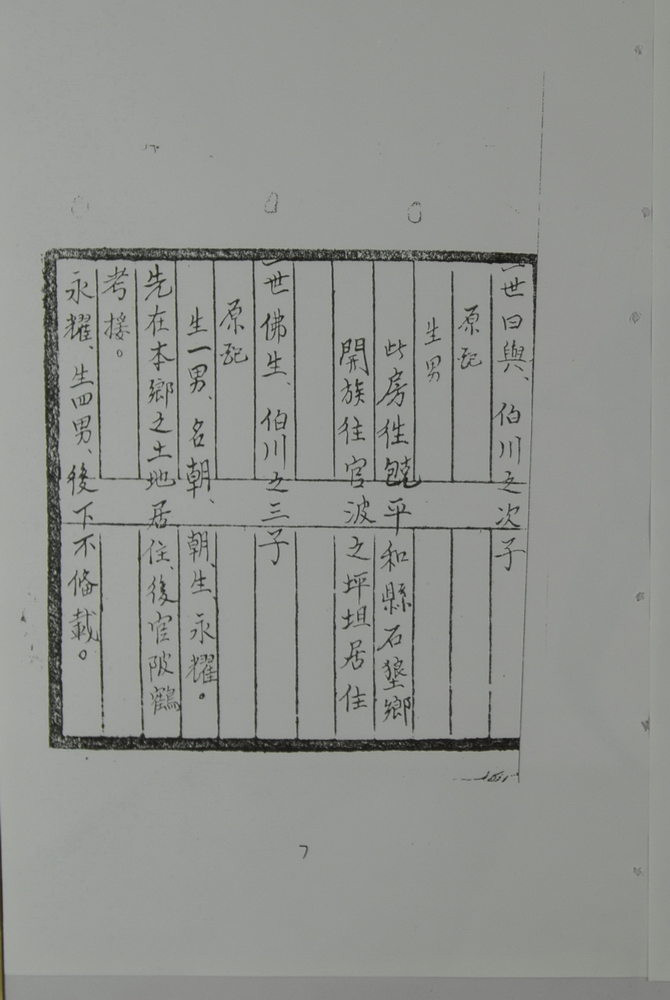 世曰與、伯川之次子
原配
生男
此房往饒平和縣石壟鄉
開族往官波之坪坦居住
世佛生、伯川之三子
原配
生一男、名朝、朝生、永耀。
先在本鄉之土地居住、後官陂鶴
考接。
永耀、生四男、後下不俻載。
7